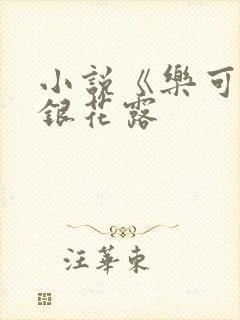 小说《樂可
銀花露
汪華東